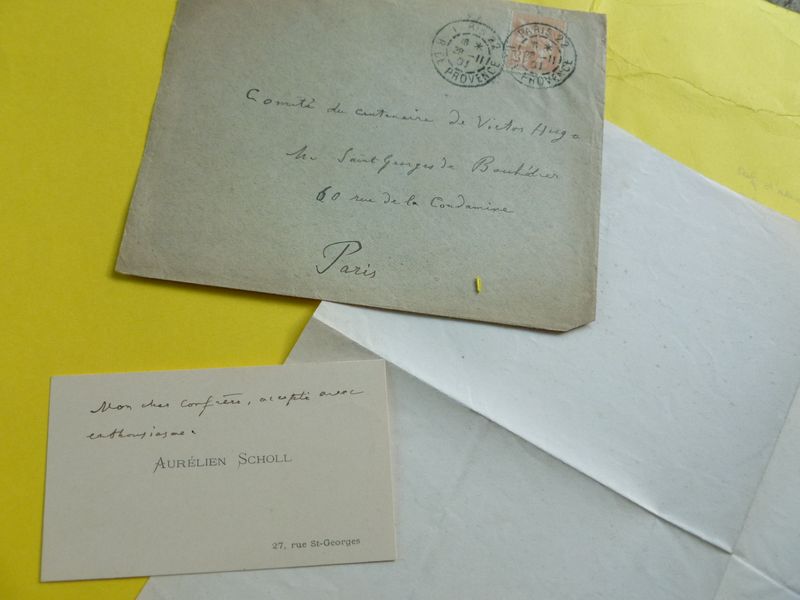 PARIS 22
28 11
01
R. DE PROVENCE
PARIS 22
11
01
PROVENCE
Comité du centenaire de Victor Hugo
Mr Saint Georges de Bouhélier
60 rue de la Condamine
Paris
Mon cher Confrère, accepté avec
enthousiasme.
AURÉLIEN SCHOLL
27, rue St-Georges